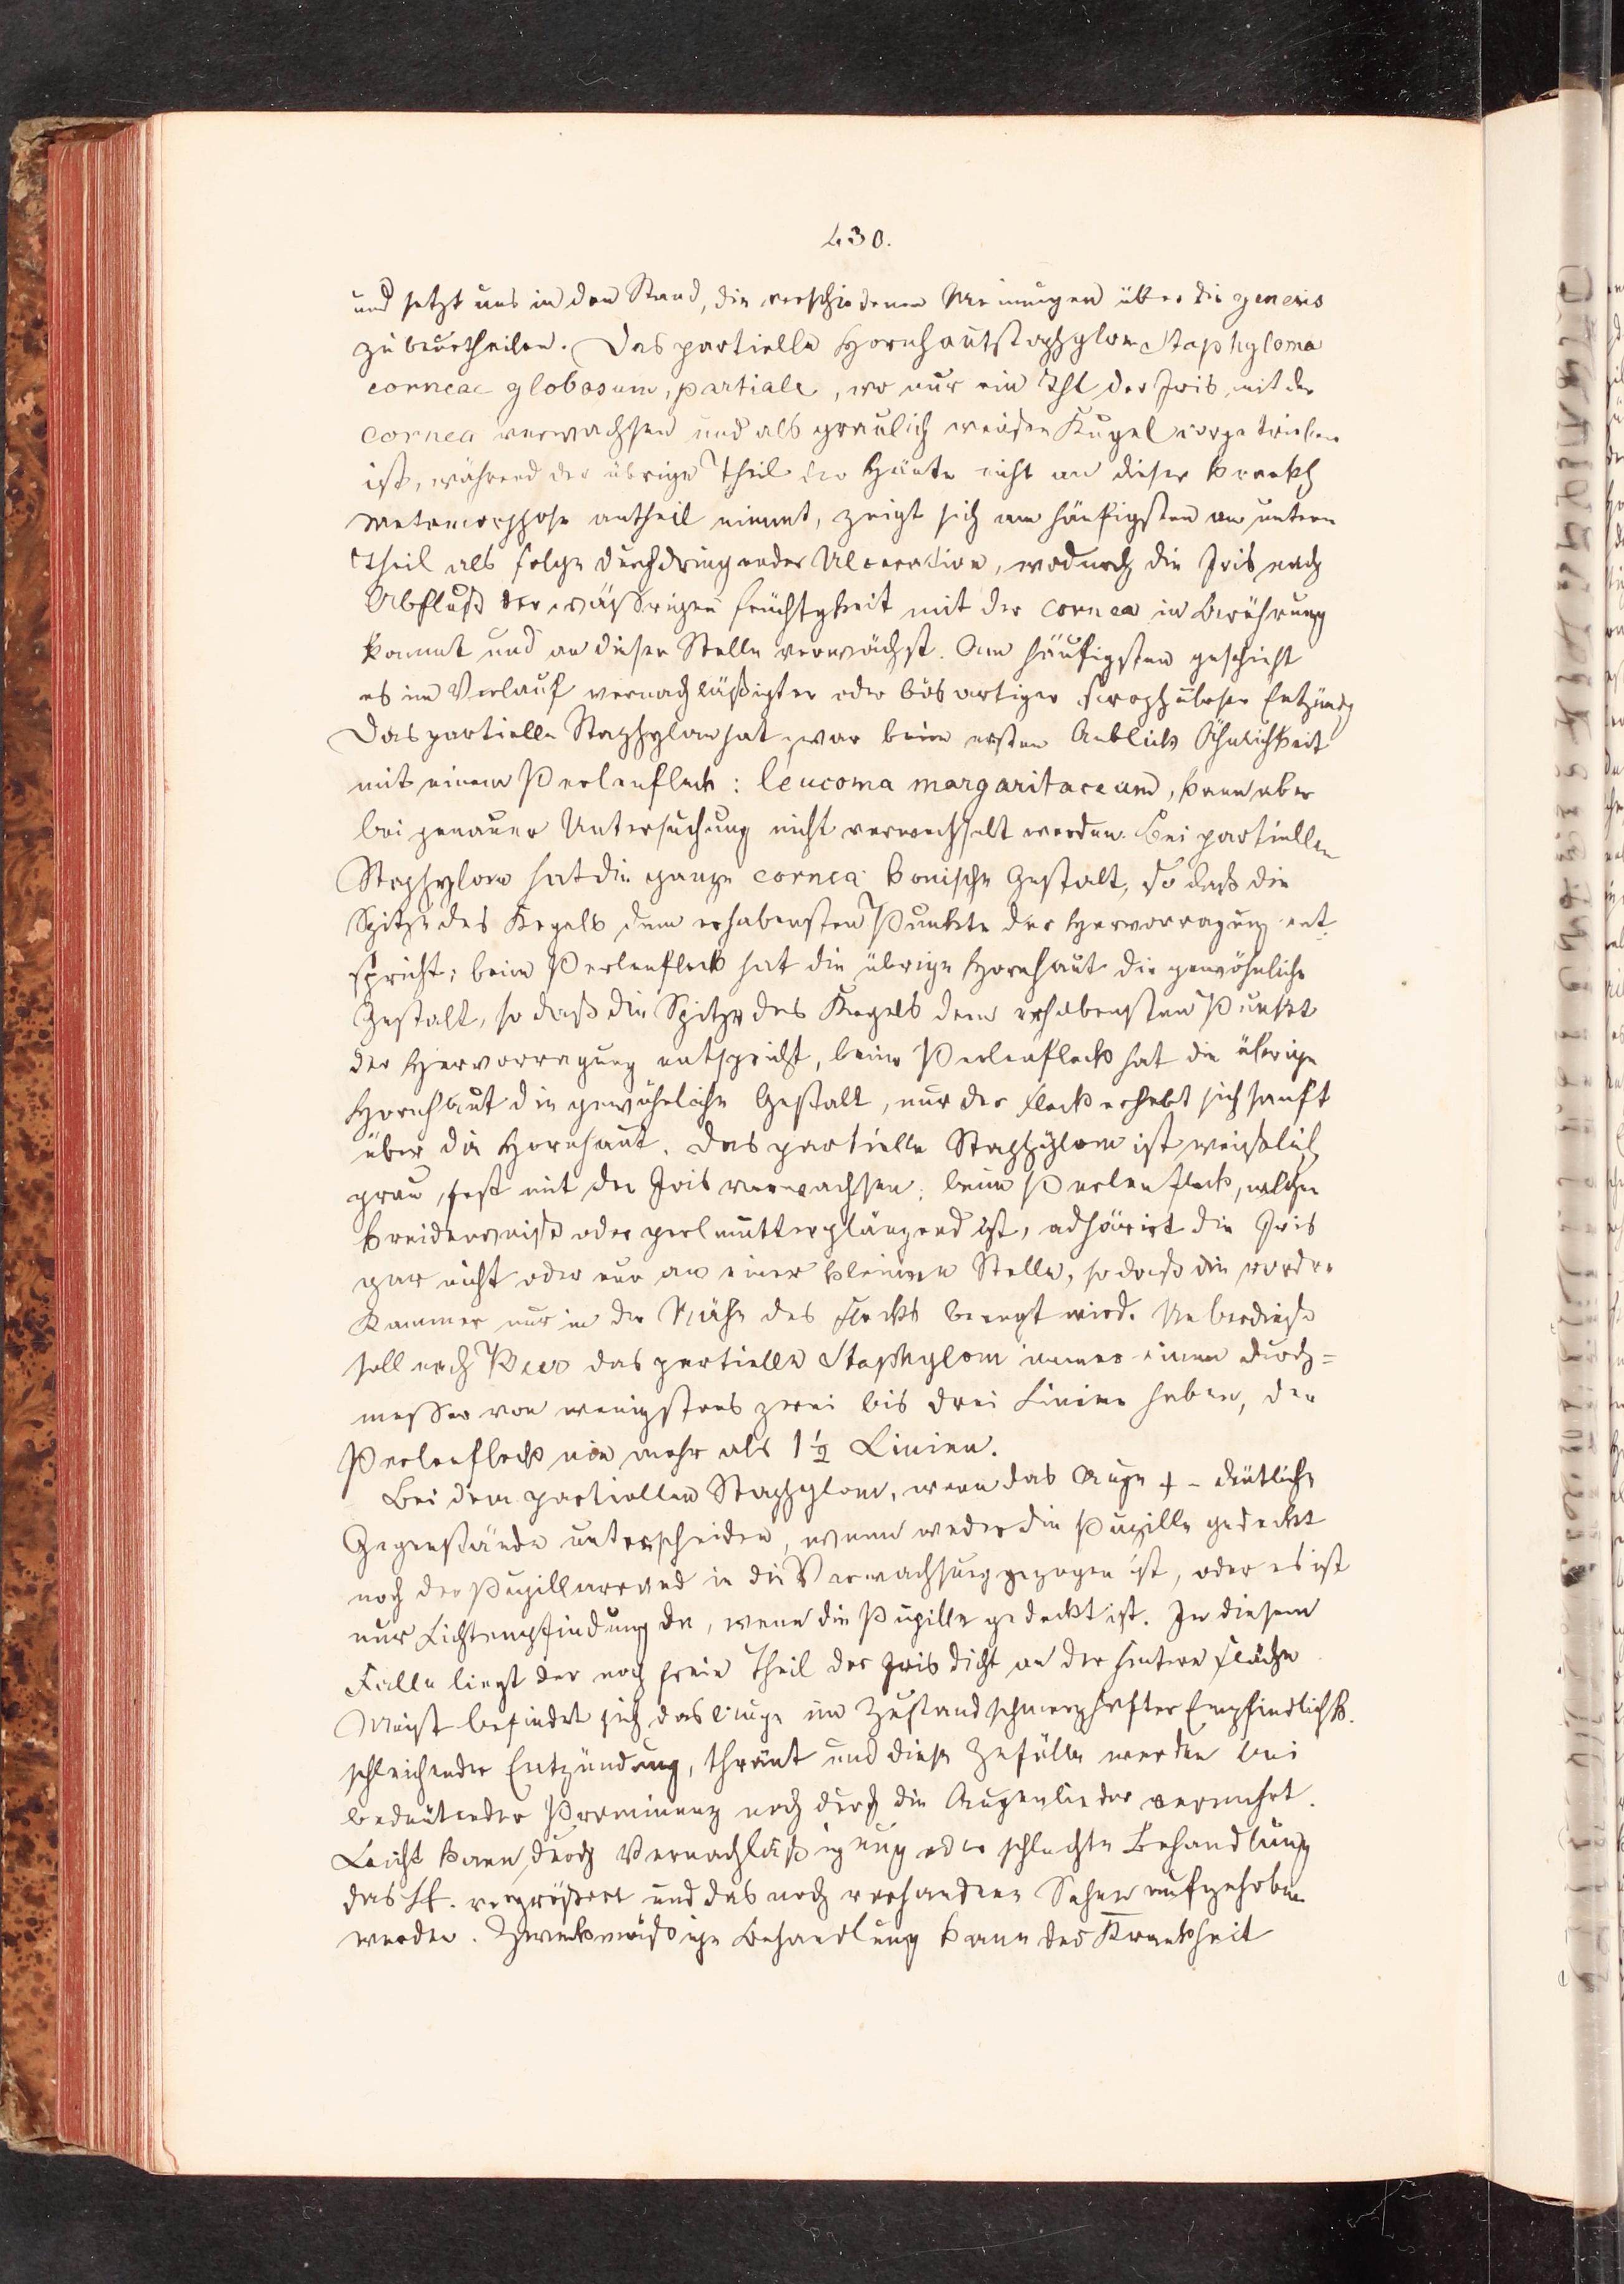 430.
und setzt uns in den Stand, die verschiedenen Meinungen über die genesis
zu beurtheilen. Das partielle Hornhautstaphylom Staphyloma
corneae globosum, partiale, wo nur ein Thl der Iris mit der
cornea verwachsen und als graulich weiser Kugel vorgetrieben
ist, während der übrige Theil der Häute nicht an dieser krankh
Metamorphose antheil nimmt, zeigt sich am häufigsten am untern
Theil als folge durchdringender Ulceration, wodurch die Iris nach
Abfluß der wäßrigen feuchtgkeit mit der cornea in Berührung
kommt und an dieser Stelle verwächst. Am häufigsten geschieht
es im Verlauf vernachläßigter oder bösartiger scrophulöser Entzündg
Das partielle Staphylom hat zwar beim ersten Anblick Ähnlichkeit
mit einem Perlenfleck: leucoma margaritaceum, kann aber
bei genauer Untersuchung nicht verwechselt werden. Bei partiellen
Staphylom hat die ganze cornea konische Gestalt, so daß die
Spitze des Kegels dem erhabensten Punkte der Hervorragung ent-
spricht; beim Perlenfleck hat die übrige Hornhaut die gewöhnliche
Gestalt, so daß die Spitze des Kegels dem erhabensten Punkt
der Hervorragung entspricht, beim Perlenfleck hat die übrige
Hornhaut die gewöhnliche Gestalt, nur der Fleck erhebt sich sanft
über die Hornhaut. Das partielle Staphylom ist weißlich
grau, fest mit der Iris verwachsen; beim Perlenfleck, welcher
kreidenweiß oder perlmutterglänzend ist, adhärirt die Iris
gar nicht oder nur an einer kleinen Stelle, so daß die vordre
Kammer nur in der Nähe des Flecks beengt wird. Ueberdieß
soll nach Beer das partielle Staphylom immer einen Durch=
messer von wenigstens zwei bis drei Linien haben, der
Perlenfleck nie mehr als 1 1/2 Linien.
Bei dem partiellen Staphylom, wenn das Auge + - deutliche
Gegenstände unterscheiden, wenn weder die Pupille gedeckt
noch der Pupillarrand in die Verwachsung gezogen ist, oder es ist
nur Lichtempfindung da, wenn die Pupille gedeckt ist. In diesem
Falle liegt der noch freie Theil der Iris dicht an der hintern Fläche
Meist befindet sich das Auge im Zustand schmerzhafter Empfindlichk.
schleichender Entzündung, thränt und diese Zufälle werden bei
bedeutender Prominenz noch durch die Augenlieder vermehrt.
Leicht kann durch Vernachläßigung oder schlechte Behandlung
das St. vergrößert und das noch vorhandene Sehen aufgehoben
werden. Zweckmäßige Behandlung kann der Krankheit